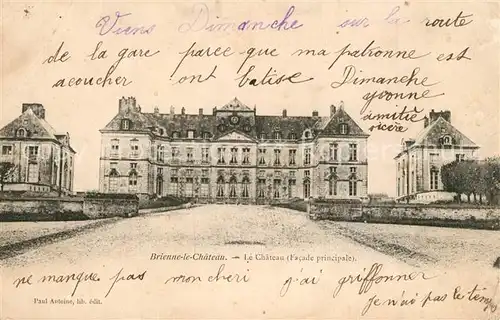 Viens Dimanche sur la route
de la gare parce-que ma patronne est
acoucher ont batise Dimanche
yvonne
amitié
ne manque pas mon cheri j'ai griffonner
je n'ai pas le temps
Brienne-le-Château. — Le Château (Façade principale).
Paul Antoine, lib. édit.